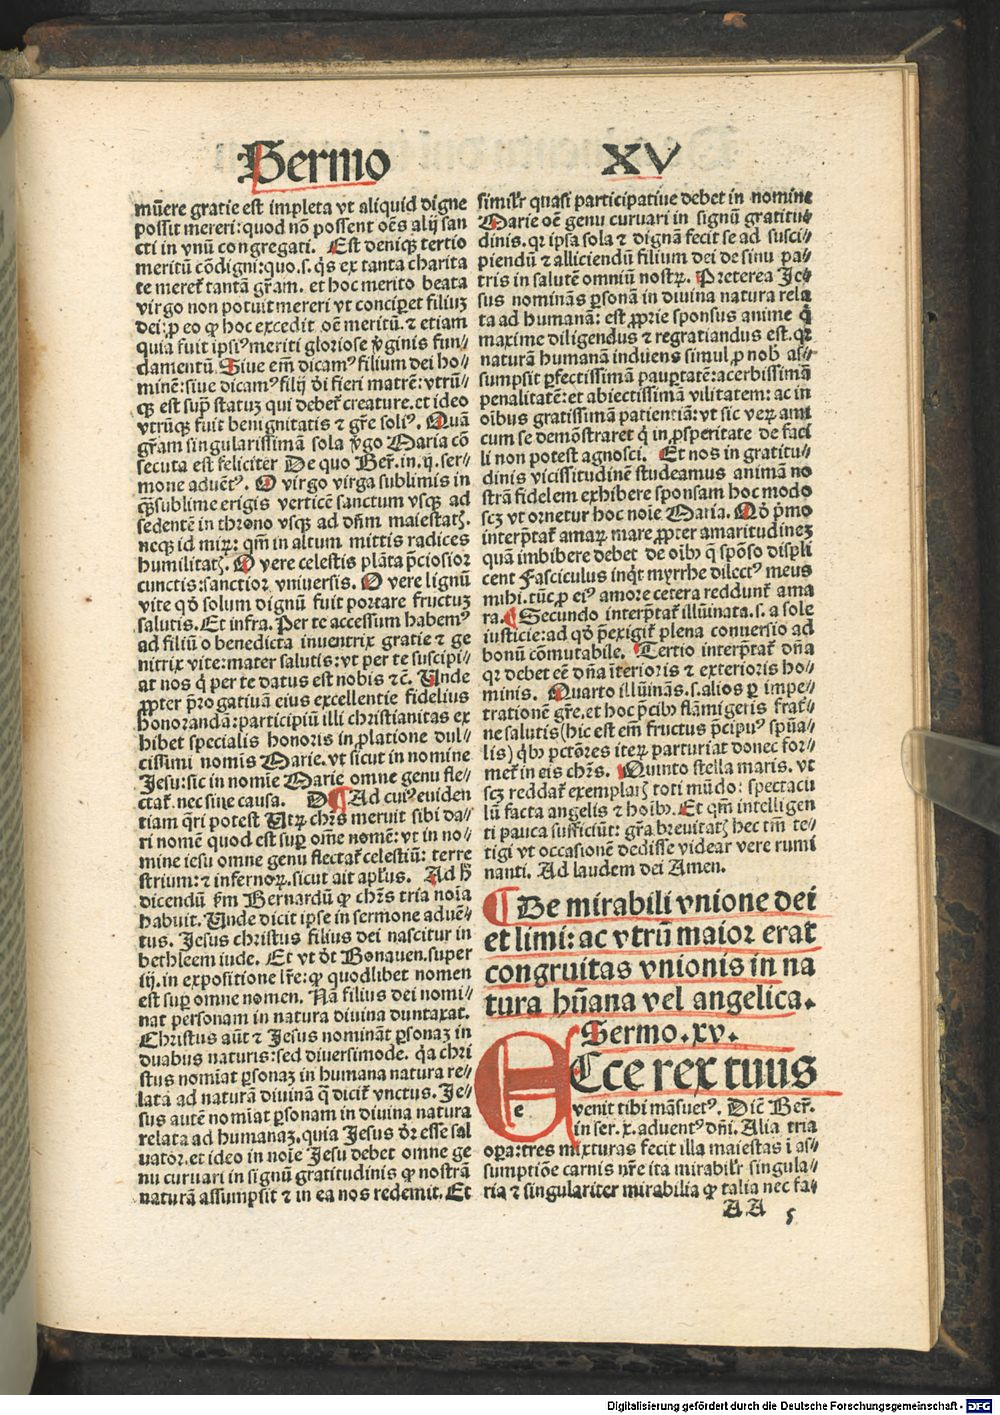 Sermo XV
mūere gratie est impleta vt aliquid digne
possit mereri: quod nō possent oēs alij san
cti in vnū congregati. Est deniqꝫ tertio
meritū cōdigni: quo.s.q̇s ex tanta charita
te meret̄ tantā gr̄am. et hoc merito beata
virgo non potuit mereri vt concip̄et filiuꝫ
dei: ꝑ eo ꝙ hoc excedit oē meritū. ⁊ etiam
quia fuit ipsiꝰ meriti gloriose v̄ginis fun⸗
damentū. Siue em̄ dicamꝰ filium dei ho⸗
minē: siue dicamꝰ filij dei fieri matrē: vtrū⸗
qꝫ est sup̄ statuꝫ qui debet̄ creature. et ideo
vtrūqꝫ fuit benignitatis ⁊ gr̄e soliꝰ. Quā
gr̄am singularissimā sola v̄go Maria cō
secuta est feliciter De quo Ber̄. in. ij. ser⸗
mone aduētꝰ. O virgo virga sublimis in
qꝫsublime erigis verticē sanctum vsqꝫ ad
sedentē in throno vsqꝫ ad dn̄m maiestatꝭ.
neqꝫ id mirꝝ: qm̄ in altum mittis radices
humilitatꝭ. O vere celestis plāta p̄ciosior
cunctis: sanctior vniuersis. O vere lignū
vite qd̄ solum dignū fuit portare fructuꝫ
salutis. Et infra. Per te accessum habemꝰ
ad filiū o benedicta inuentrix gratie ⁊ ge
nitrix vite: mater salutis: vt per te suscipi⸗
at nos q̇ per te datus est nobis ⁊c̄. Unde
ꝓpter p̄rogatiuam eius excellentie fidelius
honorandā: participiū illi christianitas ex
hibet specialis honoris in ꝓlatione dul⸗
cissimi nomis Marie. vt sicut in nomine
Jesu: sic in nomīe Marie omne genu fle⸗
ctat̄. nec sine causa. D ¶ Ad cuiꝰ euiden
tiam q̄ri potest Utꝝ chr̄s meruit sibi da⸗
ri nomē quod est sup̄ om̄e nomē: vt in no⸗
mine iesu omne genu flectat̄ celestiū: terre
strium: ⁊ infernoꝝ. sicut ait apl̄us. Ad h̄
dicendū ẜm Bernardū ꝙ chr̄s tria noīa
habuit. Unde dicit ipse in sermone aduē⸗
tus. Jesus christus filius dei nascitur in
bethleem iude. Et vt dt̄ Bonauen. super
iij. in expositione lr̄e: ꝙ quodlibet nomen
est sup̄ omne nomen. Nā filius dei nomi⸗
nat personam in natura diuina duntaxat.
Christus aūt ⁊ Jesus nomināt ꝑsonaꝫ in
duabus naturis: sed diuersimode. q̇a chri
stus nomīat ꝑsonaꝫ in humana natura re⸗
lata ad naturā diuinā q̄ dicit̄ vnctus. Je⸗
sus autē nomīat ꝑsonam in diuina natura
relata ad humanaꝫ. quia Jesus dr̄ esse sal
uator. et ideo in noīe Jesu debet omne ge
nu curuari in signū gratitudinis ꝙ nostrā
naturā assumpsit ⁊ in ea nos redemit. Et
simil̄r quasi participatiue debet in nomine
Marie oē genu curuari in signū gratitu⸗
dinis. qꝛ ipsa sola ⁊ dignā fecit se ad susci⸗
piendū ⁊ alliciendū filium dei de sinu pa⸗
tris in salutē omniū nostꝝ. Preterea Je⸗
sus nominās ꝑsonā in diuina natura rela
ta ad humanā: est ꝓprie sponsus anime q̇
maxime diligendus ⁊ regratiandus est. qꝛ
naturā humanā induens simul ꝓ nob̄ as⸗
sumpsit ꝑfectissimā pauꝑtatē: acerbissimā
penalitatē: et abiectissimā vilitatem: ac in
oībus gratissimā patientiā: vt sic verꝝ ami
cum se demōstraret q̇ in ꝓsperitate de faci
li non potest agnosci. Et nos in gratitu⸗
dinis vicissitudinē studeamus animā no
strā fidelem exhibere sponsam hoc modo
scꝫ vt ornetur hoc noīe Maria. Qd̄ p̄mo
interp̄tat̄ amaꝝ mare ꝓpter amaritudineꝫ
quā imbibere debet de oībꝰ q̄ spōso displi
cent Fasciculus inq̇t myrrhe dilectꝰ meus
mihi. tūc ꝓ eiꝰ amore cetera reddunt̄ ama
ra. ¶ Secundo interp̄tat̄ illūinata. s. a sole
iusticie: ad qd̄ p̄exigit̄ plena conuersio ad
bonū cōmutabile. Tertio interp̄tat̄ dn̄a
qꝛ debet eē dn̄a īterioris ⁊ exterioris ho⸗
minis. Quarto illūinās. s. alios ꝑ impe⸗
trationē gr̄e. et hoc p̄cibꝰ flāmigeris frat̄⸗
ne salutis (hic est em̄ fructus p̄cipuꝰ spūa⸗
lis) qb̄ꝰ pctōres iteꝝ parturiat donec for⸗
met̄ in eis chr̄s. Quinto stella maris. vt
scꝫ reddat̄ exemplarꝭ toti mūdo: spectacu
lū facta angelis ⁊ hoībꝰ. Et qm̄ intelligen
ti pauca sufficiūt: gr̄a breuitatꝭ hec tm̄ te⸗
tigi vt occasionē dedisse videar vere rumi
nanti. Ad laudem dei Amen.
¶ De mirabili vnione dei
et limi: ac vtrū maior erat
congruitas vnionis in na
tura hūana vel angelica.
Sermo .xv.
Ecce rex tuus
venit tibi māsuetꝰ. Dic̄ Ber̄.
in ser. x. aduentꝰ dn̄i. Alia tria
oꝑa: tres mixturas fecit illa maiestas ī as⸗
sumptiōe carnis nr̄e ita mirabil̄r singula⸗
ria ⁊ singulariter mirabilia ꝙ talia nec fa⸗
AA 5
Digitalisierung gefördert durch die Deutsche Forschungsgemeinschaft - DFG